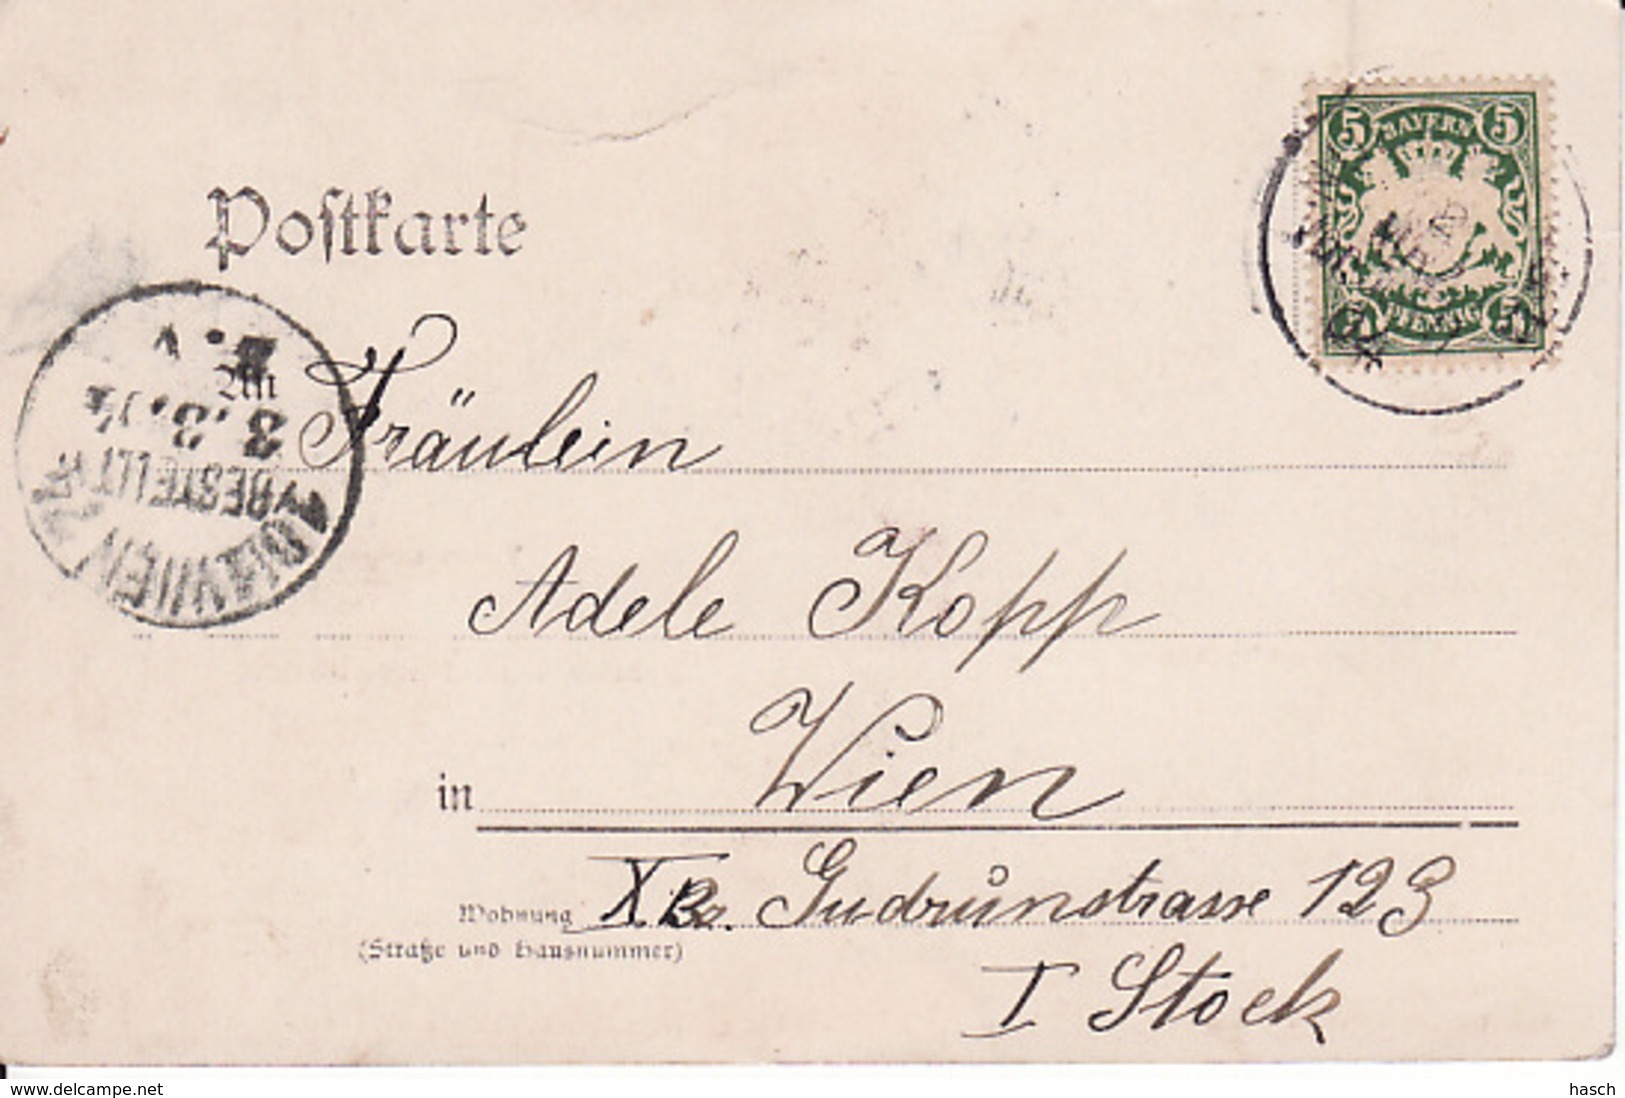 5 BAYERN 5
5 PFENNIG 5
Postkarte
An Fräulein
Adele Kopp
in Wien
Wohnung X. Bz. Gudrunstrasse 123
(Straße und Hausnummer)
I Stock
WIEN
BESTELLT
3.3.
delcampe.net
hasch